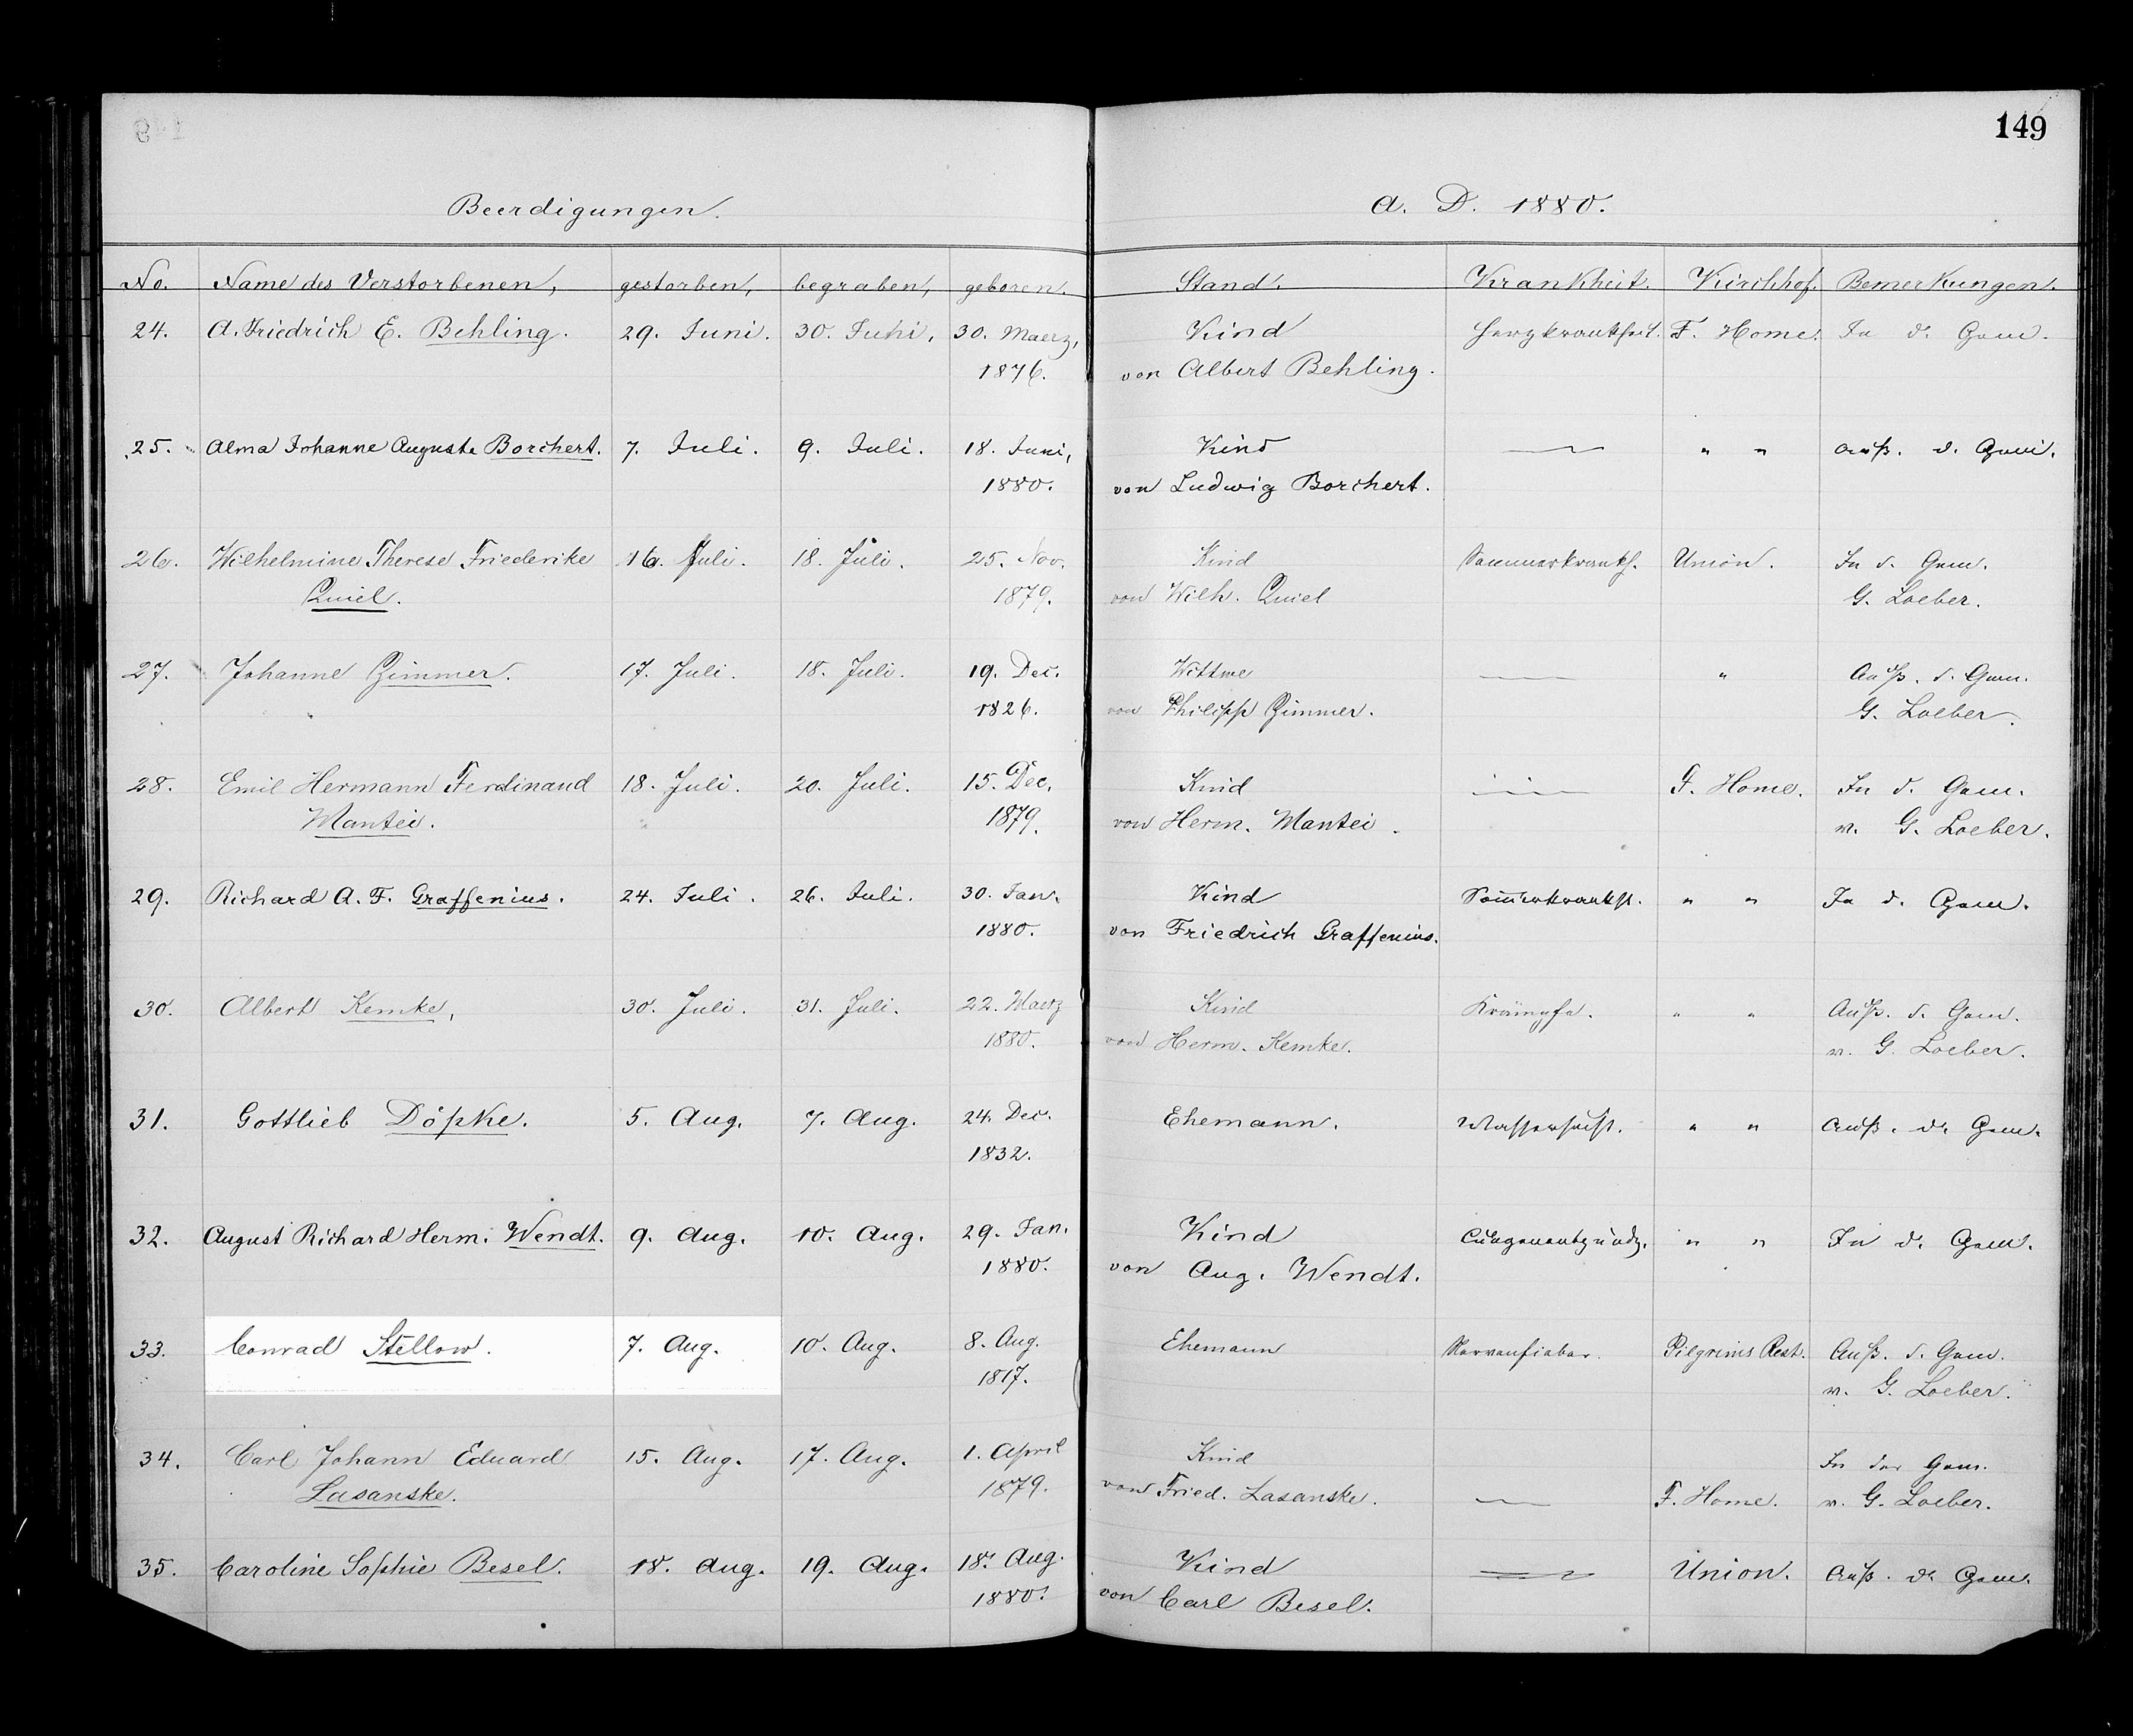 149
Beerdigungen. A. D. 1880.
No. Name des Verstorbenen, gestorben, begraben, geboren. Stand. Krankheit. Kirchhof. Bemerkungen.
24. A. Friedrich E. Behling. 29. Juni. 30. Juni. 30. Maerz, Kind Herzkrankheit. F. Home. In d. Gem.
1876. von Albert Behling.
25. Alma Johanne Auguste Borchert. 7. Juli. 9. Juli. 18. Juni, Kind " " Auß. d. Gem.
1880. von Ludwig Borchert.
26. Wilhelmine Therese Friederike 16. Juli. 18. Juli. 25. Nov. Kind Sommerkrankh. Union. In d. Gem.
Quiel. 1879. von Wilh. Quiel G. Loeber.
27. Johanne Zimmer. 17. Juli. 18. Juli. 19. Dec. Wittwe " Auß. d. Gem.
1826. von Philipp Zimmer. G. Loeber.
28. Emil Hermann Ferdinand 18. Juli. 20. Juli. 15. Dec. Kind F. Home. In d. Gem.
Mantei. 1879. von Herm. Mantei. v. G. Loeber.
29. Richard A. F. Graffenius. 24. Juli. 26. Juli. 30. Jan. Kind Som̄erkrankh. " " In d. Gem.
1880. von Friedrich Graffenius.
30. Albert Kemke, 30. Juli. 31. Juli. 22. Maerz Kind Krämpfe. " " Auß. d. Gem.
1880. von Herm. Kemke. v. G. Loeber.
31. Gottlieb Döpke. 5. Aug. 7. Aug. 24. Dec. Ehemann. Wassersucht. " " Auß. d. Gem.
1832.
32. August Richard Herm. Wendt. 9. Aug. 10. Aug. 29. Jan. Kind Lungenentzündg. " " In d. Gem.
1880. von Aug. Wendt.
33. Conrad Stellow. 7. Aug. 10. Aug. 8. Aug. Ehemann Nervenfieber. Pilgrims Rest. Auß. d. Gem.
1817. v. G. Loeber.
34. Carl Johann Eduard 15. Aug. 17. Aug. 1. April Kind In der Gem.
Lasanske. 1879. von Fried. Lasanske. F. Home. v. G. Loeber.
35. Caroline Sophie Besel. 18. Aug. 19. Aug. 18. Aug. Kind Union. Auß. d. Gem.
1880. von Carl Besel.